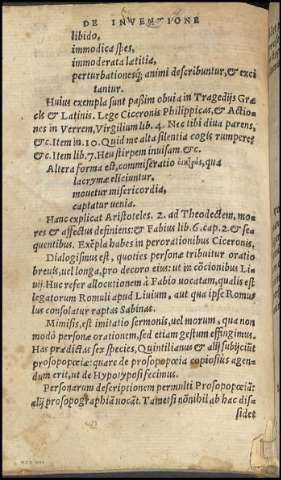 DE INVENTIONE
libido,
immodica spes,
immoderata lætitia,
perturbationesq́; animi describuntur, & exci
tantur.
Huius exempla sunt passim obuia in Tragedijs Græ
cis & Latinis. Lege Ciceronis Philippicas, & Actio
nes in Verrem, Virgilium lib. 4. Nec tibi diua parens,
&c. Item in. 10. Quid me alta silentia cogis rumpere?
&c. Item lib. 7. Heu stirpem inuisam. &c.
Altera forma est, commiseratio qua
lacrymæ eliciuntur,
mouetur misericordia,
captatur uenia.
Hanc explicat Aristoteles. 2. ad Theodectem, mo
res & affectus definiens: & Fabius lib. 6. cap. 2. & se
quentibus. Exēpla habes in perorationibus Ciceronis,
Dialogismus est, quoties personæ tribuitur oratio
breuis, uel longa, pro decoro eius: ut in cōcionibus Li
uij. Huc refer allocutionem à Fabio uocatam, qualis est
legatorum Romuli apud Liuium, aut qua ipse Romu
lus consolatur raptas Sabinas.
Mimisis, est imitatio sermonis, uel morum, qua non
modò persona orationem, sed etiam gestum effingimus.
Has prædictas sex species, Quintilianus & alij subijciūt
prosopopœiæ: quare de prosopopœia copiosius agen
dum erit, ut de Hypotyposi fecimus.
Personarum descriptionem permulti Prosopopœiā:
alij prosopographiā uocāt. Tametsi nōnihil ab hac dis
sidet